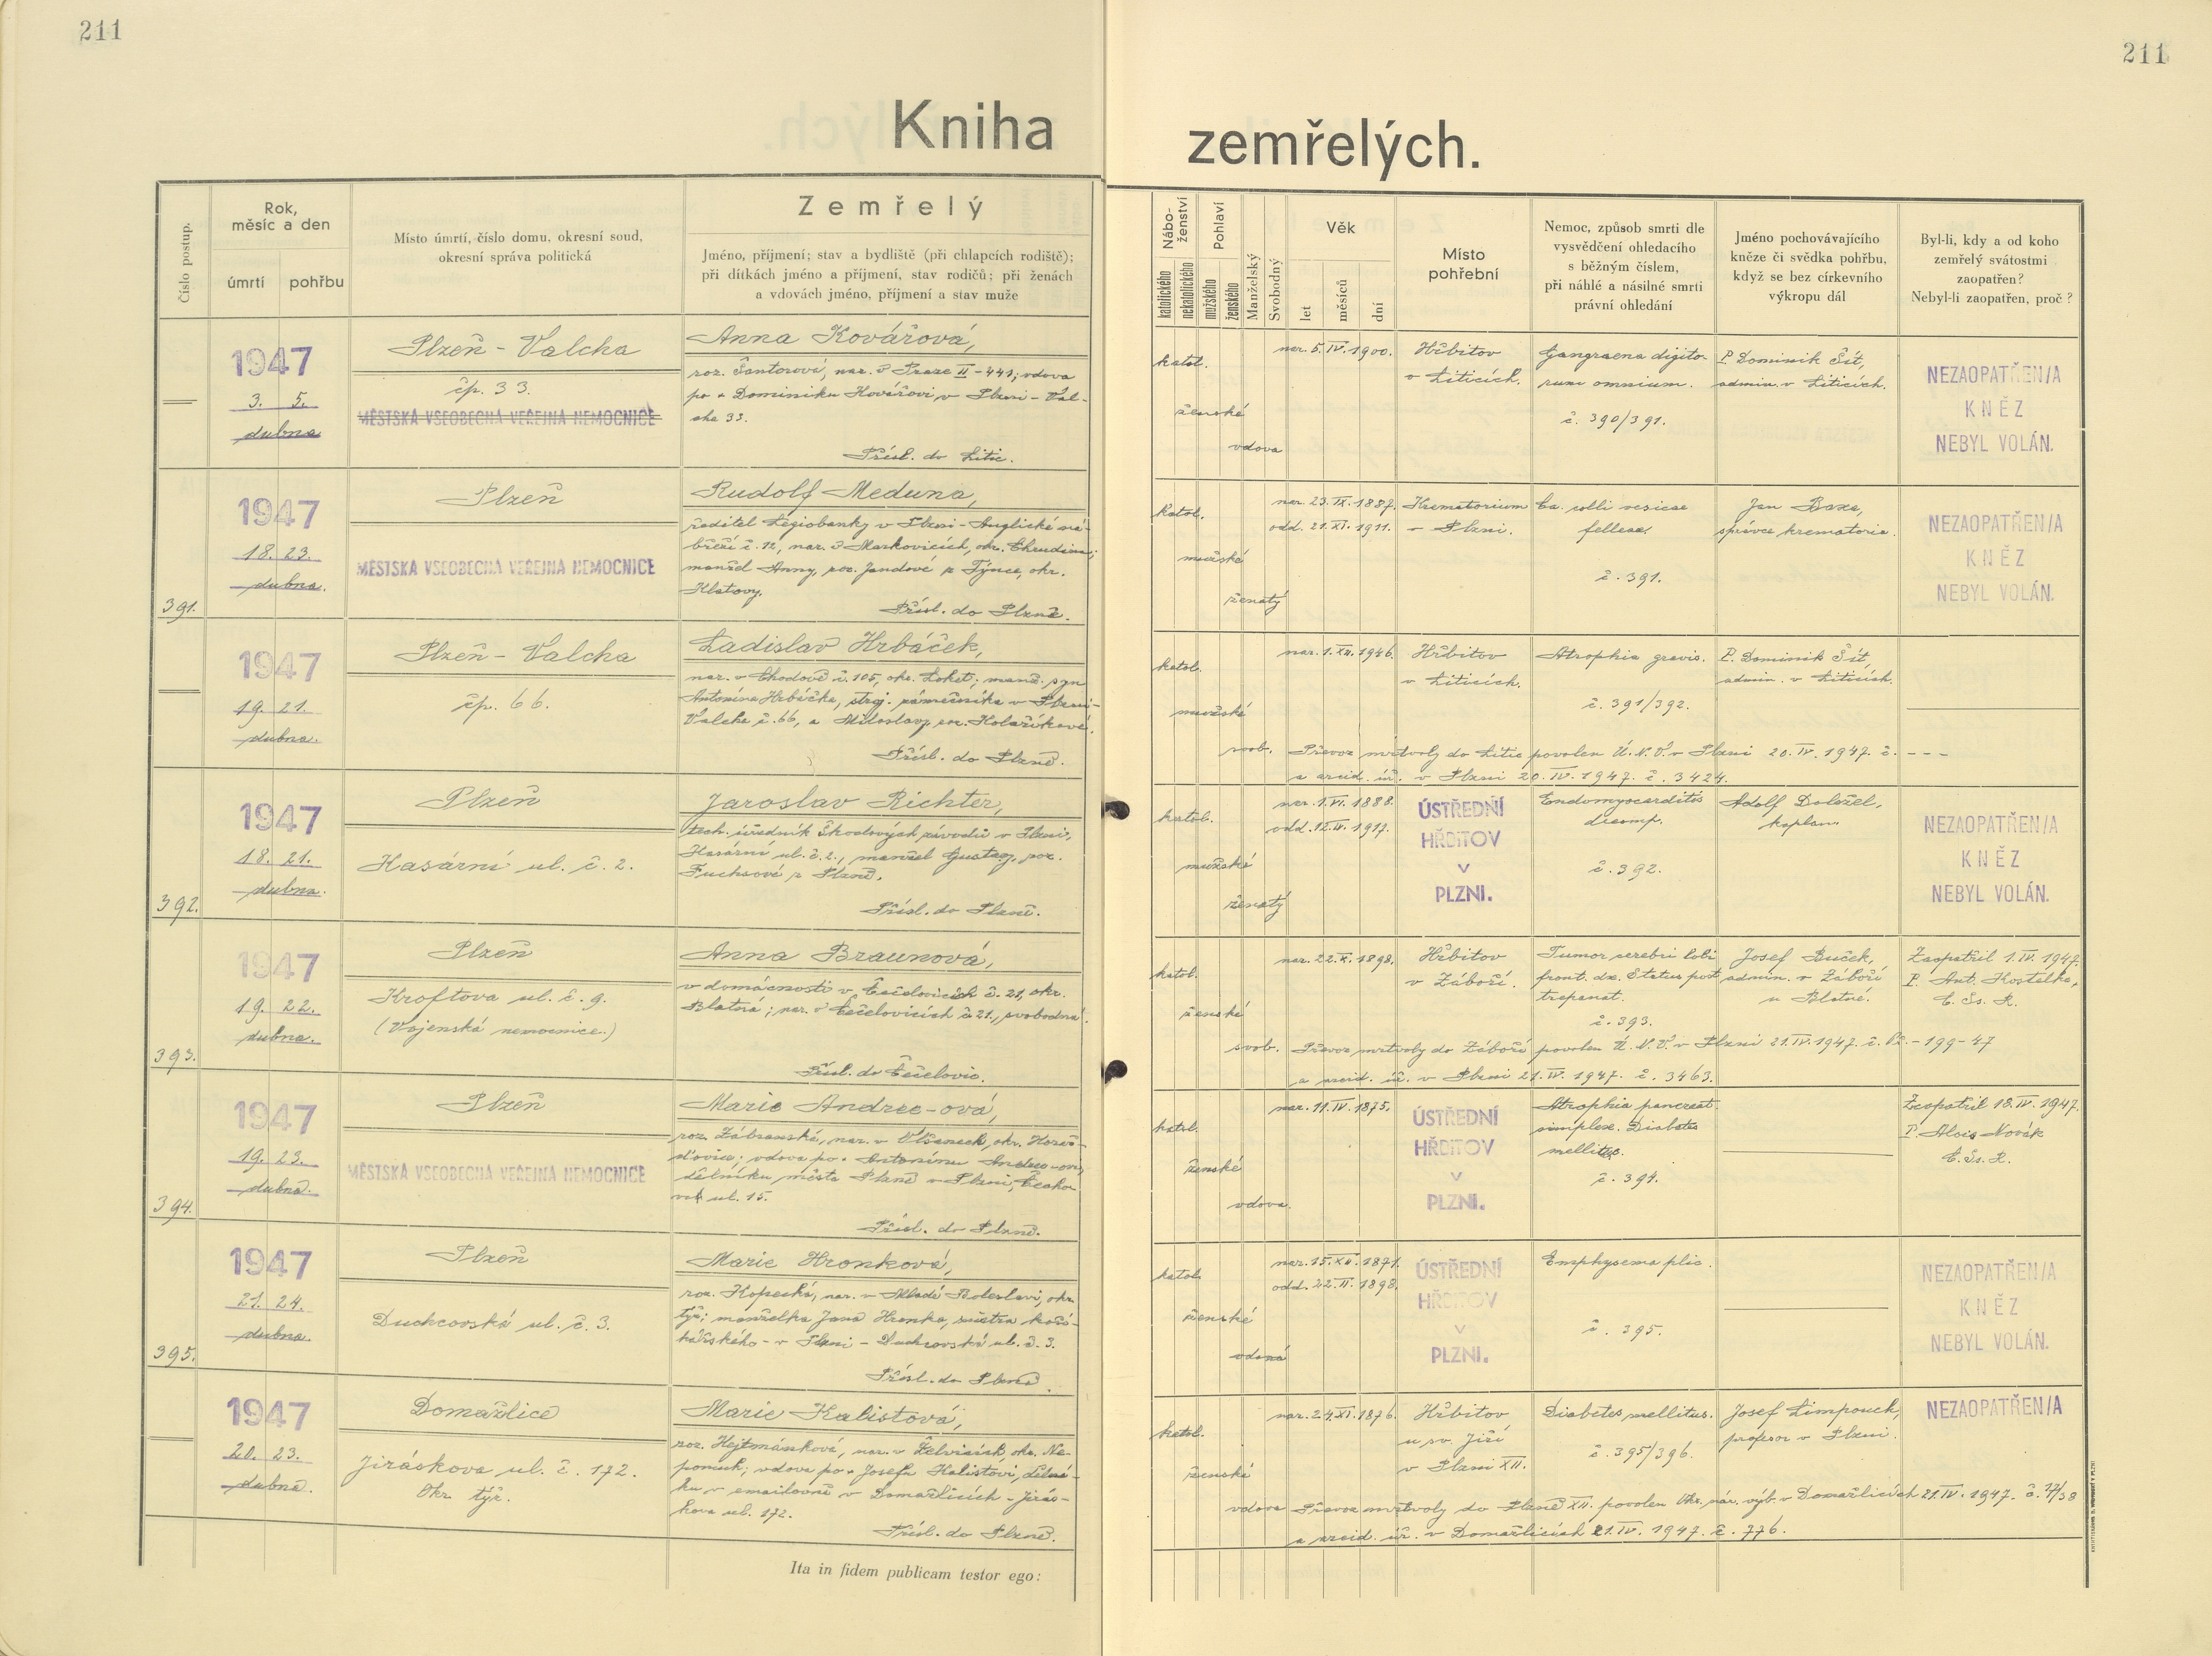 211
211
Kniha
zemřelých.
Číslo postup.
Rok,
měsíc a den
úmrtí
pohřbu
Místo úmrtí, číslo domu, okresní soud,
okresní správa politická
Zemřelý
Jméno, příjmení; stav a bydliště (při chlapcích rodiště);
při dítkách jméno a příjmení, stav rodičů; při ženách
a vdovách jméno, příjmení a stav muže
Nábo-
ženství
katolického
nekatolického
Pohlaví
mužského
ženského
Manželský
Svobodný
Věk
let
měsíců
dní
Místo
pohřební
Nemoc, způsob smrti dle
vysvědčení ohledacího
s běžným číslem,
při náhlé a násilné smrti
právní ohledání
Jméno pochovávajícího
kněze či svědka pohřbu,
když se bez církevního
výkropu dál
Byl-li, kdy a od koho
zemřelý svátostmi
zaopatřen?
Nebyl-li zaopatřen, proč ?
1947
3. 5.
dubna
Plzeň - Valcha
čp. 33.
MĚSTSKÁ VŠEOBECNÁ VEŘEJNÁ NEMOCNICE
Anna Kovářová,
roz. Šantorová, nar. v Praze II - 441; vdova
po + Dominiku Kovářovi v Plzni - Val-
che 33.
Přísl. do Litic.
katol.
ženské
vdova
nar. 5. IV. 1900.
Hřbitov
v Liticích.
Gangraena digito-
rum omnium.
č. 390/391.
P. Dominik Šít,
admin. v Liticích.
NEZAOPATŘEN/A
KNĚZ
NEBYL VOLÁN.
391.
1947
18. 23.
dubna.
Plzeň
MĚSTSKÁ VŠEOBECNÁ VEŘEJNÁ NEMOCNICE
Rudolf Meduna,
ředitel Legiobanky v Plzni - Anglické ná-
břeží č. 12, nar. v Markovicích, okr. Chrudim;
manžel Anny, roz. Jandové z Týnce, okr.
Klatovy.
Přísl. do Plzně.
katol.
mužské
ženatý
nar. 23. IX. 1887.
odd. 21. XI. 1911.
Krematorium
v Plzni.
Ca. colli vesicae
felleae.
č. 391.
Jan Baxa,
správce krematoria.
NEZAOPATŘEN/A
KNĚZ
NEBYL VOLÁN.
1947
19. 21.
dubna.
Plzeň - Valcha
čp. 66.
Ladislav Hrbáček,
nar. v Chodově č. 105, okr. Loket; manž. syn
Antonína Hrbáčka, stroj. zámečníka v Plzni -
Valcha č. 66, a Miloslavy, roz. Kolaříkové.
Přísl. do Plzně.
katol.
mužské
svob.
nar. 1. XII. 1946.
Hřbitov
v Liticích.
Atrophia gravis.
č. 391/392.
P. Dominik Šít,
admin. v Liticích.
Převoz mrtvoly do Litic povolen Ú. N. V. v Plzni 20. IV. 1947. č. - - -
a arcid. úř. v Plzni 20. IV. 1947. č. 3424.
392.
1947
18. 21.
dubna.
Plzeň
Kasární ul. č. 2.
Jaroslav Richter,
tech. úředník Škodových závodů v Plzni,
Kasární ul. č. 2., manžel Gustavy, roz.
Fuchsové z Plzně.
Přísl. do Plzně.
katol.
mužské
ženatý
nar. 1. VI. 1888.
odd. 12. IV. 1917.
ÚSTŘEDNÍ
HŘBITOV
V
PLZNI.
Endomyocarditis
decomp.
č. 392.
Adolf Doležel,
kaplan
NEZAOPATŘEN/A
KNĚZ
NEBYL VOLÁN.
393.
1947
19. 22.
dubna.
Plzeň
Kroftova ul. č. 9.
(Vojenská nemocnice.)
Anna Braunová,
v domácnosti v Čečelovicích č. 21, okr.
Blatná; nar. v Čečelovicích č. 21., svobodná.
Přísl. do Čečelovic.
katol.
ženské
svob.
nar. 22. X. 1898.
Hřbitov
v Záboří.
Tumor cerebri lobi
front. dx. Status post
trepanat.
č. 393.
Josef Buček,
admin. v Záboří
u Blatné.
Zaopatřil 1. IV. 1947.
P. Ant. Kostelka,
C. Ss. R.
Převoz mrtvoly do Záboří povolen Ú. N. V. v Plzni 21. IV. 1947. č. - 199 - 47
a arcid. úř. v Plzni 21. IV. 1947. č. 3463.
394.
1947
19. 23.
dubna.
Plzeň
MĚSTSKÁ VŠEOBECNÁ VEŘEJNÁ NEMOCNICE
Marie Andree-ová,
roz. Zábranská, nar. v Olšanech, okr. Horaž-
ďovice; vdova po + Antonínu Andree-ovi,
dělníku města Plzně v Plzni,
ul. 15.
Přísl. do Plzně.
katol.
ženské
vdova.
nar. 11. IV. 1875.
ÚSTŘEDNÍ
HŘBITOV
V
PLZNI.
Atrophia pancreat.
simplex. Diabetes
mellitus.
č. 394.
Zaopatřil 18. IV. 1947.
P. Alois Novák
C. Ss. R.
395.
1947
21. 24.
dubna.
Plzeň
Duchcovská ul. č. 3.
Marie Hronková,
roz. Kopecká, nar. v Mladé Boleslavi, okr.
týž; manželka Jana Hronka, mistra kolo-
mářského - v Plzni - Duchcovská ul. č. 3.
Přísl. do Plzně.
katol.
ženské
vdaná
nar. 15. XII. 1871.
odd. 22. II. 1898.
ÚSTŘEDNÍ
HŘBITOV
V
PLZNI.
Emphysema plic.
č. 395.
NEZAOPATŘEN/A
KNĚZ
NEBYL VOLÁN.
1947
20. 23.
dubna.
Domažlice
Jiráskova ul. č. 172.
Okr. týž.
Marie Kalistová,
roz. Hejtmánková, nar. v Želvicích, okr. Ne-
pomuk; vdova po + Josefu Kalistovi, dělní-
ku v emailovně v Domažlicích - Jirás-
kova ul. 172.
Přísl. do Plzně.
katol.
ženské
vdova
nar. 24. XI. 1876.
Hřbitov
u sv. Jiří
v Plzni XII.
Diabetes mellitus.
č. 395/396.
Josef Limpouch,
profesor v Plzni.
NEZAOPATŘEN/A
Převoz mrtvoly do Plzně XII. povolen Okr. nár. výb. v Domažlicích 21. IV. 1947. č. 12/38
a arcid. úř. v Domažlicích 21. IV. 1947. č. 776.
Ita in fidem publicam testor ego: